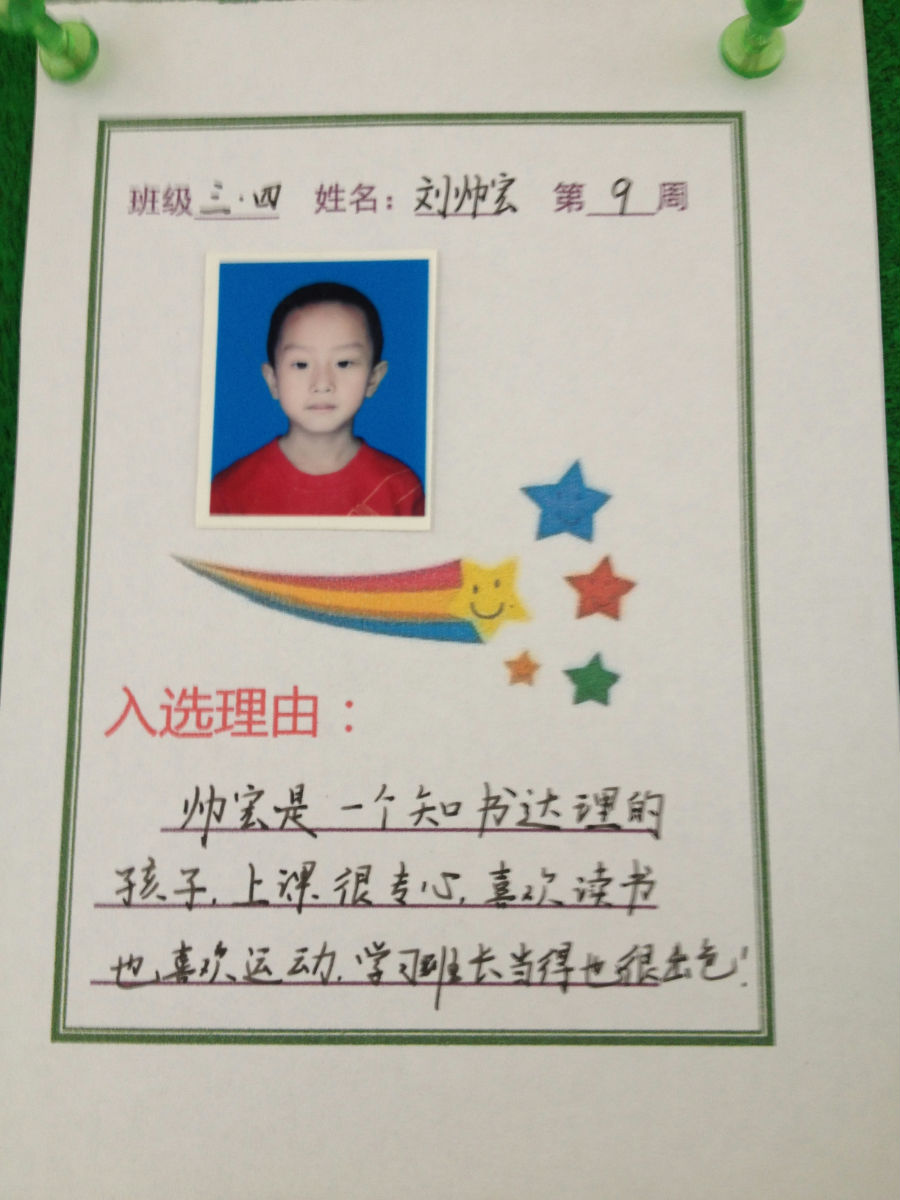 班级三·四 姓名：刘帅宏 第9周
入选理由：
帅宏是一个知书达理的
孩子，上课很专心，喜欢读书
也喜欢运动，学习班长当得也很出色！